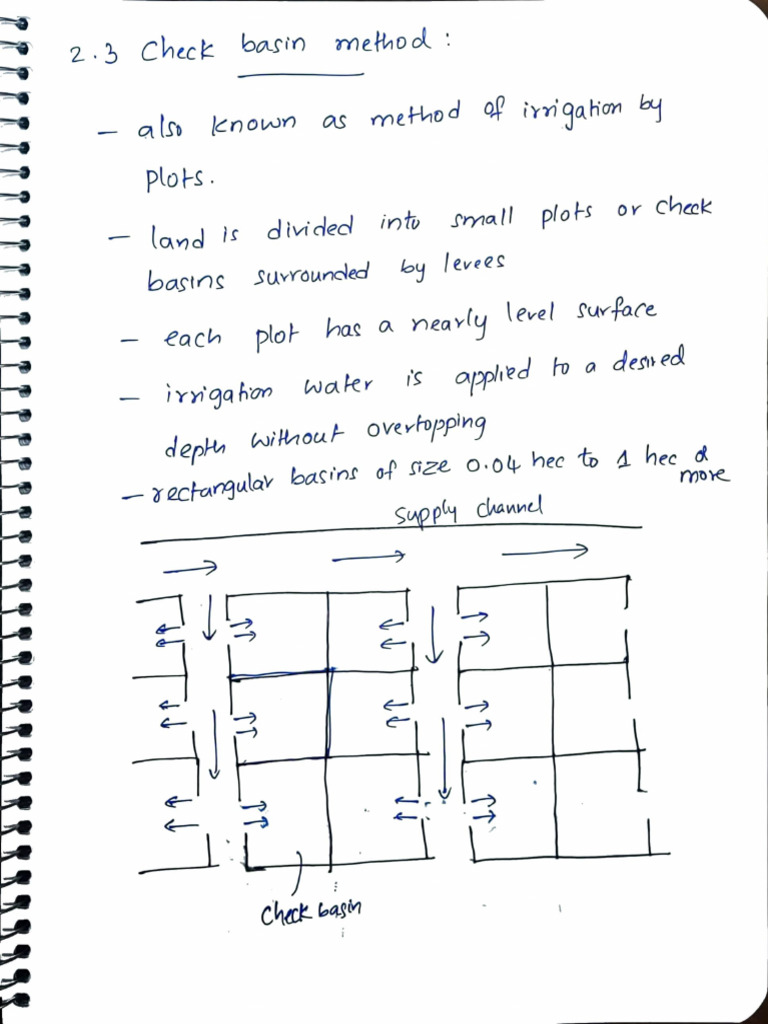 2.3 Check basin method :
- also known as method of irrigation by
plots.
- land is divided into small plots or check
basins surrounded by levees
- each plot has a nearly level surface
- irrigation water is applied to a desired
depth without overtopping
- rectangular basins of size 0.04 hec to 1 hec &
more
supply channel
Check basin